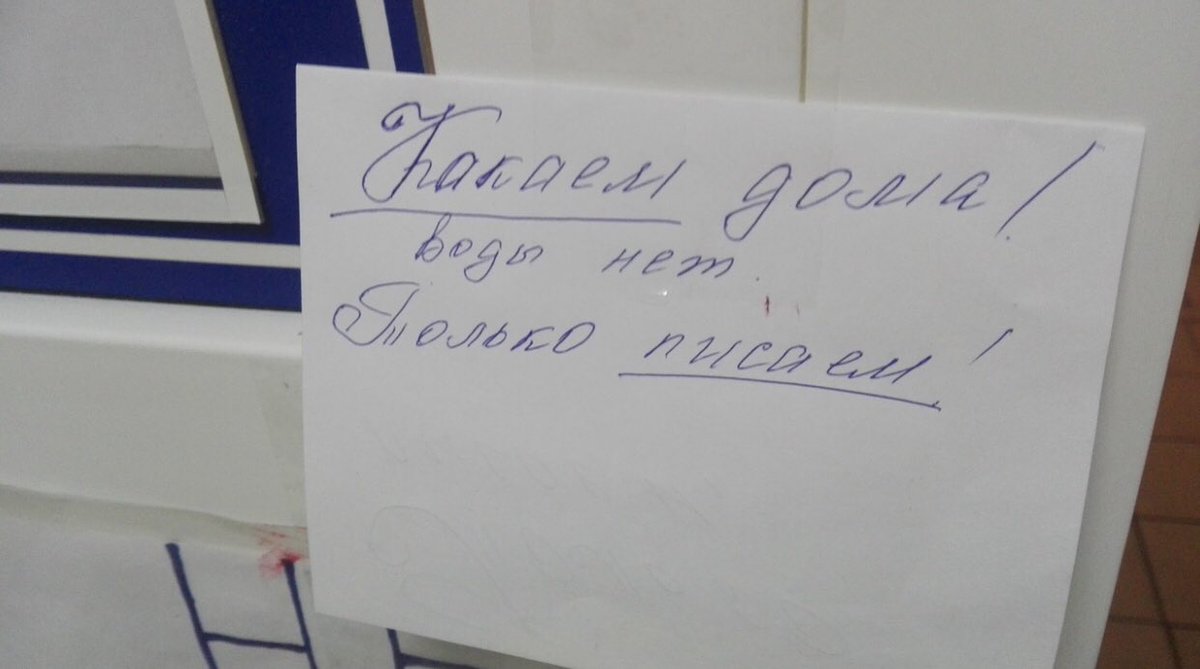 Какаем дома!
воды нет.
Только писаем!